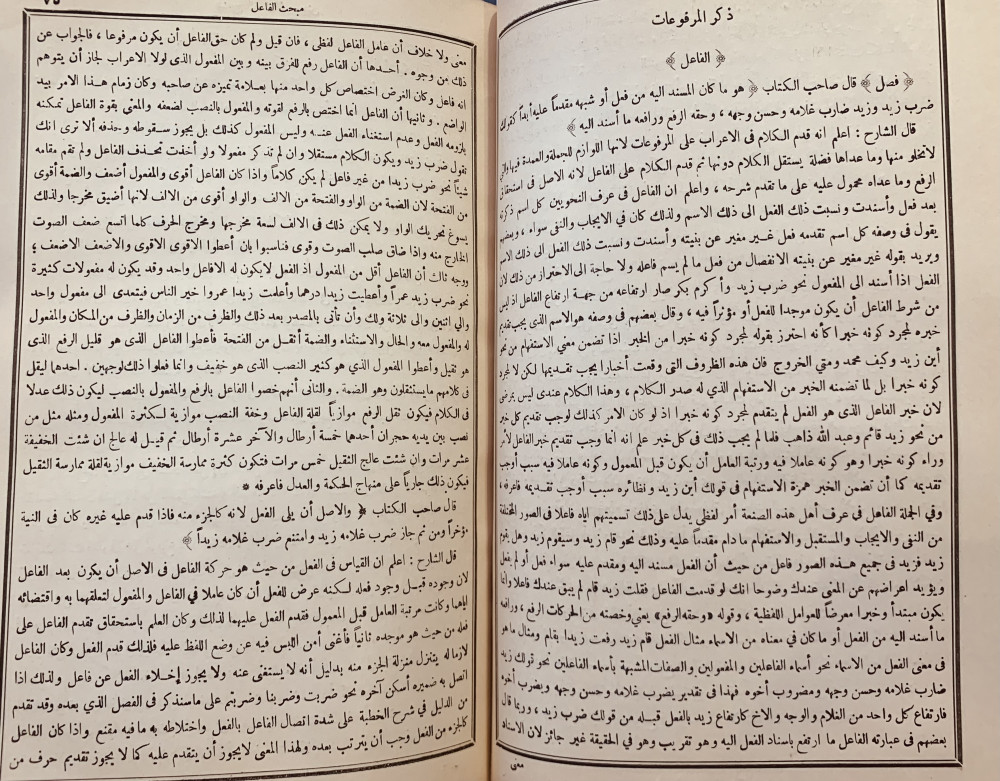 ذكر المرفوعات
﴿ الفاعل ﴾
﴿ فصل ﴾ قال صاحب الكتاب ﴿ هو ما كان المسند اليه من فعل أو شبهه مقدماً عليه أبداً كقولك
ضرب زيد وزيد ضارب غلامه وحسن وجهه ، وحقه الرفع ورافعه ما أسند اليه ﴾
قال الشارح : اعلم انه قدم الكلام فى الاعراب على المرفوعات لانها اللوازم للجملة والعمدة فيها والتى
لاتخلو منها وما عداها فضلة يستقل الكلام دونها ثم قدم الكلام على الفاعل لانه الاصل فى استحقاق
الرفع وما عداه محمول عليه على ما تقدم شرحه ، واعلم ان الفاعل فى عرف النحويين كل اسم ذكرته
بعد فعل وأسندت ونسبت ذلك الفعل الى ذلك الاسم ولذلك كان في الايجاب والنفى سواء ، وبعضهم
يقول فى وصفه كل اسم تقدمه فعل غير مغير عن بنيته وأسندت ونسبت ذلك الفعل الى ذلك الاسم
ويريد بقوله غير مغير عن بنيته الانفصال من فعل ما لم يسم فاعله ولا حاجة الى الاحتراز من ذلك لان
الفعل اذا أسند الى المفعول نحو ضرب زيد وأكرم بكر صار ارتفاعه من جهة ارتفاع الفاعل اذ ليس
من شرط الفاعل أن يكون موجدا للفعل أو مؤثراً فيه ، وقال بعضهم فى وصفه هو الاسم الذى يجب تقديم
خبره لمجرد كونه خبرا كأنه احترز بقوله لمجرد كونه خبرا من الخبر اذا تضمن معنى الاستفهام من نحو
أين زيد وكيف محمد ومتى الخروج فان هذه الظروف التى وقعت أخبارا يجب تقديمها لكن لا لمجرد
كونه خبرا بل لما تضمنه الخبر من الاستفهام الذى له صدر الكلام ، وهذا الكلام عندى ليس بمرضى
لان خبر الفاعل الذى هو الفعل لم يتقدم لمجرد كونه خبرا اذ لو كان الامر كذلك لوجب تقديم كل خبر
من نحو زيد قائم وعبد الله ذاهب فلما لم يجب ذلك فى كل خبر علم انه انما وجب تقديم خبر الفاعل لأمر
وراء كونه خبرا وهو كونه عاملا فيه ورتبة العامل أن يكون قبل المعمول وكونه عاملا فيه سبب أوجب
تقديمه كما أن تضمن الخبر همزة الاستفهام فى قولك أين زيد ونظائره سبب أوجب تقديمه فاعرفه ،
وفي الجملة الفاعل فى عرف أهل هذه الصنعة أمر لفظى يدل على ذلك تسميتهم اياه فاعلا فى الصور المختلفة
من النفى والايجاب والمستقبل والاستفهام ما دام مقدماً عليه وذلك نحو قام زيد وسيقوم زيد وهل يقوم
زيد فزيد فى جميع هذه الصور فاعل من حيث أن الفعل مسند اليه ومقدم عليه سواء فعل أو لم يفعل
ويؤيد اعراضهم عن المعنى عندك وضوحا انك لو قدمت الفاعل فقلت زيد قام لم يبق عندك فاعلا وانما
يكون مبتدأ وخبرا معرضاً للعوامل اللفظية ، وقوله «وحقه الرفع» يعني وخصته من الحركات الرفع ، ورافعه
ما أسند اليه من الفعل أو ما كان في معناه من الاسماء مثال الفعل قام زيد رفعت زيدا بقام ومثال ما هو
فى معنى الفعل من الاسماء نحو أسماء الفاعلين والمفعولين والصفات المشبهة بأسماء الفاعلين نحو قولك زيد
ضارب غلامه وحسن وجهه ومضروب أخوه فهذا فى تقدير يضرب غلامه وحسن وجهه ويضرب أخوه
فارتفاع كل واحد من الغلام والوجه والاخ كارتفاع زيد بالفعل قبله من قولك ضرب زيد ، وربما قال
بعضهم فى عبارته الفاعل ما ارتفع باسناد الفعل اليه وهو تقريب وهو في الحقيقة غير جائز لان الاسناد
معنى
مبحث الفاعل
٧٥
معنى ولا خلاف أن عامل الفاعل لفظى ، فان قيل ولم كان حق الفاعل أن يكون مرفوعا ، فالجواب عن
ذلك من وجوه . أحدها أن الفاعل رفع للفرق بينه وبين المفعول الذى لولا الاعراب لجاز أن يتوهم
انه فاعل وكان الغرض اختصاص كل واحد منها بعلامة تميزه عن صاحبه وكان زمام هذا الامر بيد
الواضع . وثانيها أن الفاعل انما اختص بالرفع لقوته والمفعول بالنصب لضعفه والمعنى بقوة الفاعل تمكنه
بلزومه الفعل وعدم استغناء الفعل عنه وليس المفعول كذلك بل يجوز سقوطه وحذفه ألا ترى انك
تقول ضرب زيد ويكون الكلام مستقلا وان لم تذكر مفعولا ولو أخذت تحذف الفاعل ولم تقم مقامه
شيئاً نحو ضرب زيدا من غير فاعل لم يكن كلاماً واذا كان الفاعل أقوى والمفعول أضعف والضمة أقوى
من الفتحة لان الضمة من الواو والفتحة من الالف والواو أقوى من الالف لانها أضيق مخرجا ولذلك
يسوغ تحريك الواو ولا يمكن ذلك فى الالف لسعة مخرجها ومخرج الحرف كلما اتسع ضعف الصوت
الخارج منه واذا ضاق صلب الصوت وقوى فناسبوا بان أعطوا الاقوى الاقوى والاضعف الاضعف ،
ووجه ثالث أن الفاعل أقل من المفعول اذ الفعل لايكون له الافاعل واحد وقد يكون له مفعولات كثيرة
نحو ضرب زيد عمراً وأعطيت زيدا درهما وأعلمت زيدا عمروا خير الناس فيتعدى الى مفعول واحد
والى اثنين والى ثلاثة ولك وأن تأتى بالمصدر بعد ذلك والظرف من الزمان والظرف من المكان والمفعول
له والمفعول معه والحال والاستثناء والضمة أثقل من الفتحة فأعطوا الفاعل الذى هو قليل الرفع الذى
هو ثقيل وأعطوا المفعول الذي هو كثير النصب الذى هو خفيف وانما فعلوا ذلك لوجهين . احدهما ليقل
فى كلامهم مايستثقلون وهو الضمة . والثانى أنهم خصوا الفاعل بالرفع والمفعول بالنصب ليكون ذلك عدلا
فى الكلام فيكون ثقل الرفع موازياً لقلة الفاعل وخفة النصب موازية لكثرة المفعول ومثله مثل من
نصب بين يديه حجران أحدهما خمسة أرطال والآخر عشرة أرطال ثم قيل له عالج ان شئت الخفيفة
عشر مرات وان شئت عالج الثقيل خمس مرات فتكون كثرة ممارسة الخفيف موازية لقلة ممارسة الثقيل
فيكون ذلك جارياً على منهاج الحكمة والعدل فاعرفه *
قال صاحب الكتاب ﴿ والاصل أن يلى الفعل لانه كالجزء منه فاذا قدم عليه غيره كان فى النية
مؤخراً ومن ثم جاز ضرب غلامه زيد وامتنع ضرب غلامه زيداً ﴾
قال الشارح : اعلم ان القياس فى الفعل من حيث هو حركة الفاعل فى الاصل أن يكون بعد الفاعل
لان وجوده قبل وجود فعله لكنه عرض للفعل أن كان عاملا في الفاعل والمفعول لتعلقهما به واقتضائه
اياهما وكانت مرتبة العامل قبل المعمول فقدم الفعل عليهما لذلك وكان العلم باستحقاق تقدم الفاعل على
فعله من حيث هو موجده ثانياً فأغنى أمن اللبس فيه عن وضع اللفظ عليه فلذلك قدم الفعل وكان الفاعل
لازما له يتنزل منزلة الجزء منه بدليل أنه لا يستغنى عنه ولا يجوز إخلاء الفعل عن فاعل ولذلك اذا
اتصل به ضميره أسكن آخره نحو ضربت وضربنا وضربتم على ماسنذكر فى الفصل الذى بعده وقد تقدم
من الدليل في شرح الخطبة على شدة اتصال الفاعل بالفعل واختلاطه به ما فيه مقنع واذا كان الفاعل
كالجزء من الفعل وجب أن يترتب بعده ولهذا المعنى لايجوز أن يتقدم عليه كما لا يجوز تقديم حرف من